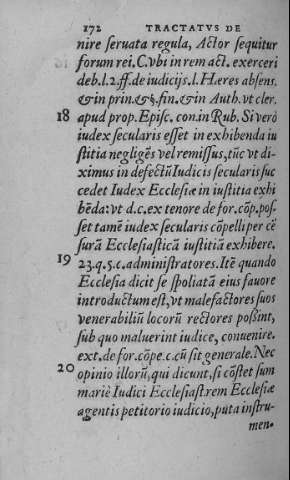 172 TRACTATVS DE
nire seruata regula, Actor sequitur
forum rei. C. vbi in rem act. exerceri
deb. l. 2. ff. de iudicijs. l. Hæres absens.
& in prin. & §. fin. & in Auth. vt cler.
18 apud prop. Episc. con. in Rub. Si verò
iudex secularis esset in exhibenda iu
stitia negligẽs vel remissus, tũc vt di-
ximus in defectũ Iudicis secularis suc
cedet Iudex Ecclesiæ in iustitia exhi
bẽda: vt d. c. ex tenore de for. cõp. pos-
set tamẽ iudex secularis cõpelli per cẽ
surã Ecclesiasticã iustitiã exhibere.
19 23. q. 5. c. administratores. Itẽ quando
Ecclesia dicit se spoliatã eius fauore
introductum est, vt malefactores suos
venerabiliũ locorũ rectores possint,
sub quo maluerint iudice, conuenire.
ext. de for. cõpe. c. cũ sit generale. Nec
20 opinio illorũ, qui dicunt, si cõstet sum
mariè Iudici Ecclesiast. rem Ecclesiæ
agentis petitorio iudicio, puta instru-
men-